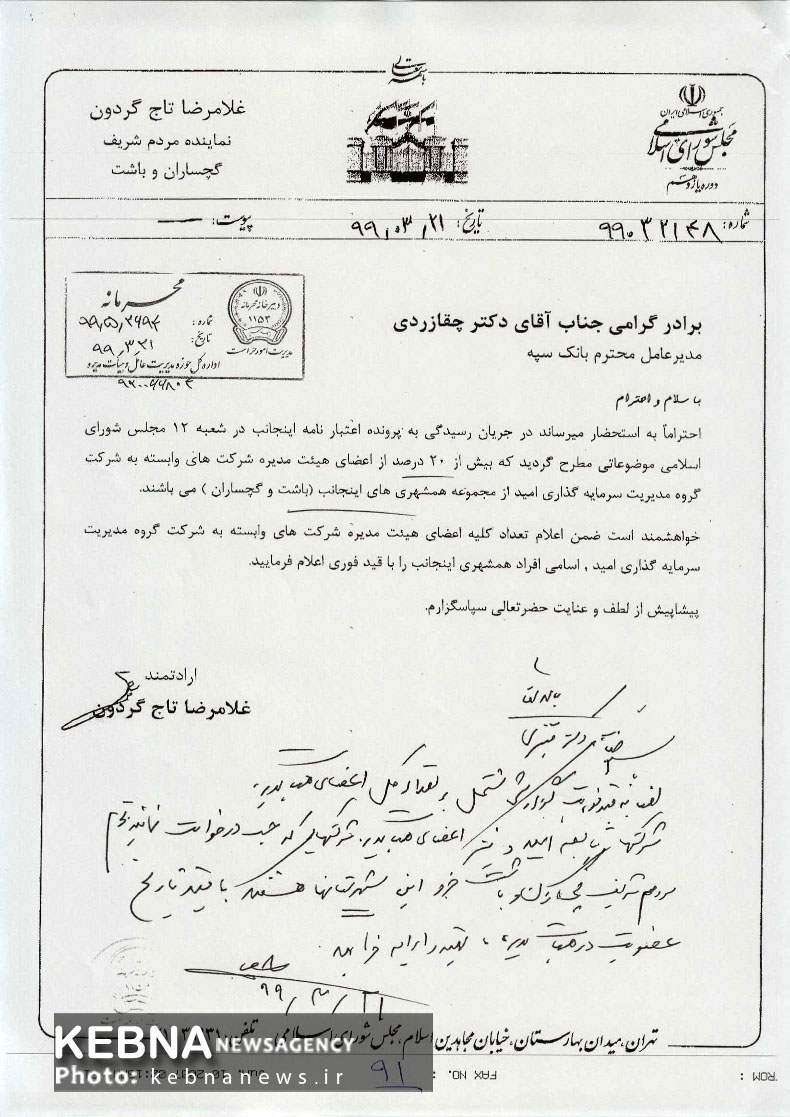 باسمه تعالی
جمهوری اسلامی ایران
مجلس شورای اسلامی
دوره یازدهم
غلامرضا تاج گردون
نماینده مردم شریف
گچساران و باشت
شماره: ۹۹۰۳۲۱۴۸
تاریخ: ۹۹/۰۳/۲۱
پیوست: —
محرمانه
دبیرخانه محرمانه
۱۱۵۳
مدیریت امور حراست
شماره:
تاریخ: ۹۹/۳/۲۱
اداره کل حوزه مدیریت عامل و هیأت مدیره
برادر گرامی جناب آقای دکتر چقازردی
مدیرعامل محترم بانک سپه
با سلام و احترام
احتراماً به استحضار میرساند در جریان رسیدگی به پرونده اعتبار نامه اینجانب در شعبه ۱۲ مجلس شورای
اسلامی موضوعاتی مطرح گردید که بیش از ۲۰ درصد از اعضای هیئت مدیره شرکت های وابسته به شرکت
گروه مدیریت سرمایه گذاری امید از مجموعه همشهری های اینجانب (باشت و گچساران ) می باشند.
خواهشمند است ضمن اعلام تعداد کلیه اعضای هیئت مدیره شرکت های وابسته به شرکت گروه مدیریت
سرمایه گذاری امید , اسامی افراد همشهری اینجانب را با قید فوری اعلام فرمایید.
پیشاپیش از لطف و عنایت حضرتعالی سپاسگزارم.
ارادتمند
غلامرضا تاج گردون
گزارش مشتمل بر تعداد کل اعضای هیات مدیره
شرکتهای تابعه امید و اعضای هیات مدیره شرکتهایی که درخواست نماینده محترم
مردم شریف گچساران و باشت جزو این شهرستانها هستند با قید تاریخ
عضویت در هیات مدیره، تهیه و ارایه فرمایید.
۹۹/۳/۲۱
تهران، میدان بهارستان، خیابان مجاهدین اسلام، مجلس شورای اسلامی تلفن:
KEBNA NEWSAGENCY
Photo: kebnanews.ir
FAX NO. :
ROM :
۹۱